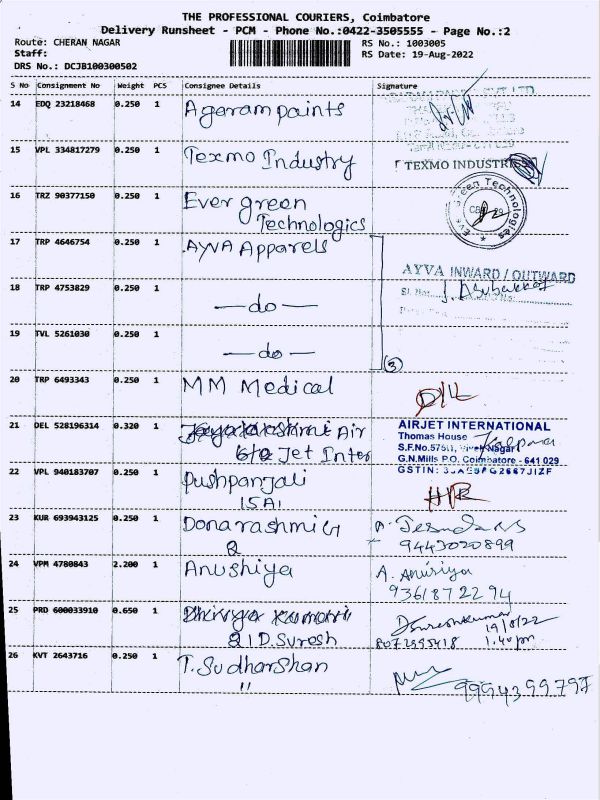 THE PROFESSIONAL COURIERS, Coimbatore
Delivery Runsheet - PCM - Phone No.:0422-3505555 - Page No.:2
Route: CHERAN NAGAR
RS No.: 1003005
Staff:
RS Date: 19-Aug-2022
DRS No.: DCJB100300502
S No Consignment No Weight PCS Consignee Details Signature
14 EDQ 23218468 0.250 1 Ageram paints
15 VPL 334817279 0.250 1 Texmo Industry TEXMO INDUSTRIES
16 TRZ 90377150 0.250 1 Ever green
Technologics
Ever Green Technologies
17 TRP 4646754 0.250 1 AYVA Apparels
AYVA INWARD / OUTWARD
18 TRP 4753829 0.250 1 — do —
19 TVL 5261030 0.250 1 — do —
(3)
20 TRP 6493343 0.250 1 MM Medical D/L
21 DEL 528196314 0.320 1 Air
Jet Inter
AIRJET INTERNATIONAL
Thomas House Kalpana
S.F.No.575/1, Nagar
G.N.Mills P.O, Coimbatore - 641 029
22 VPL 940183707 0.250 1 pushpanjali
15A1
23 KUR 693943125 0.250 1 Donarashmi G
9443020899
24 VPM 4780843 2.200 1 Anushiya A. Anusiya
9361872294
25 PRD 600033910 0.650 1 Kumari
D. Suresh
D Sureshkumar
19/8/22
1.40pm
26 KVT 2643716 0.250 1 T. Sudharshan
"
9994399797